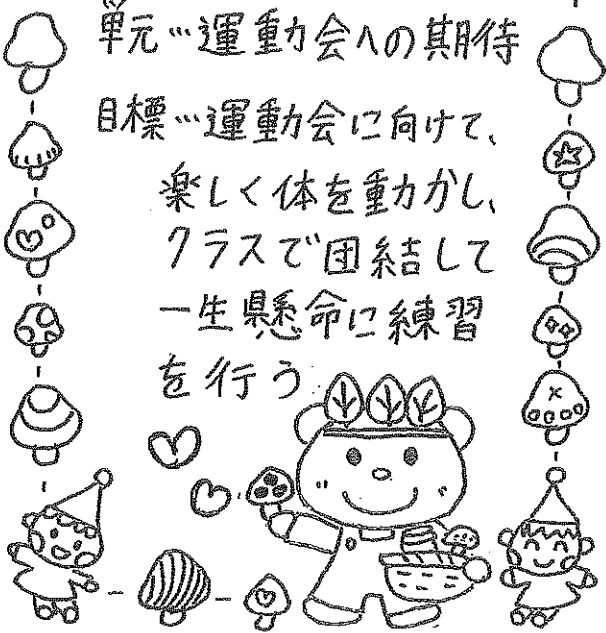 単元…運動会への期待
目標…運動会に向けて、
楽しく体を動かし、
クラスで団結して
一生懸命に練習
を行う